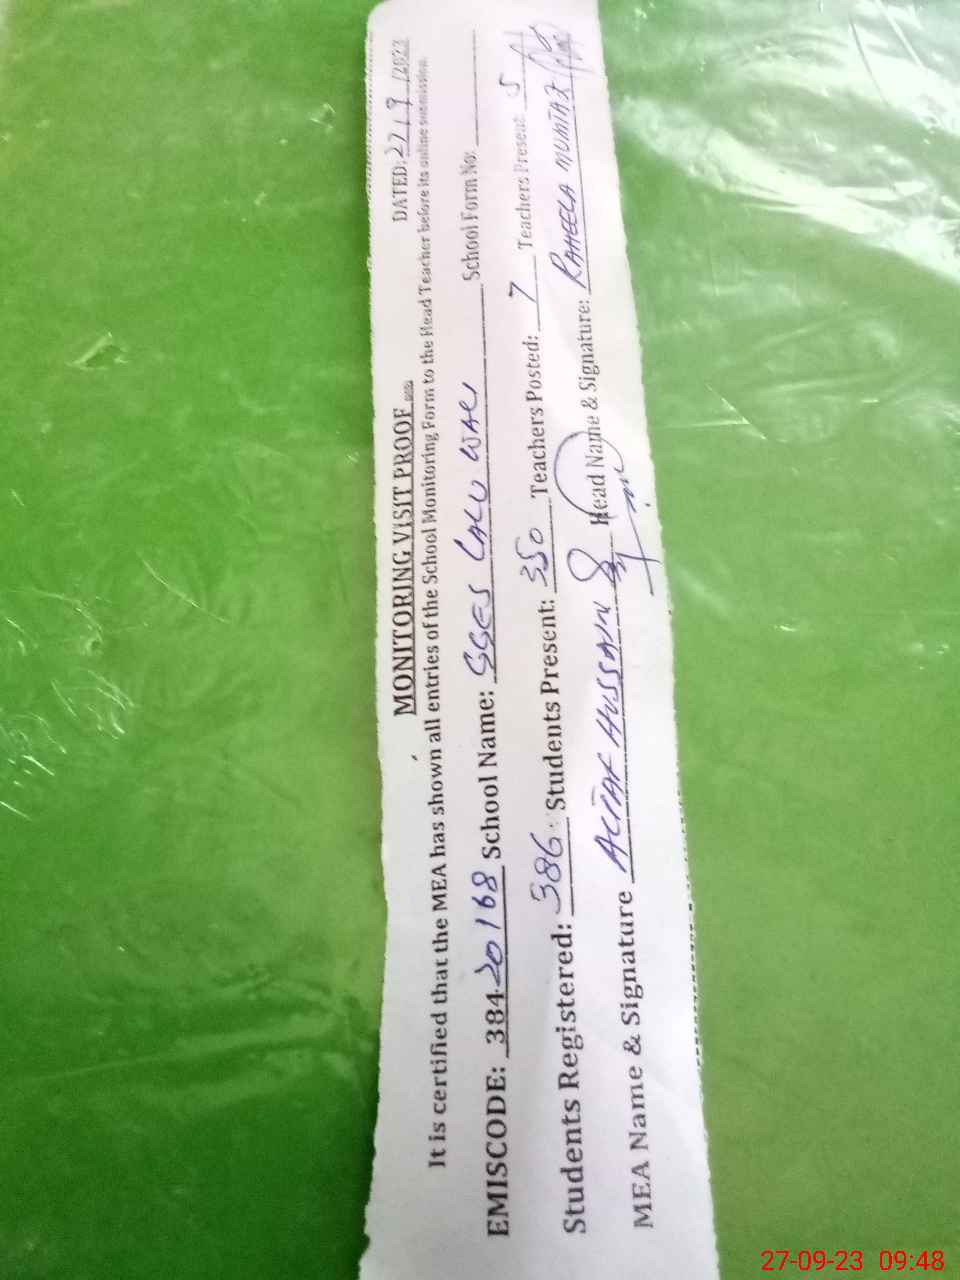 MONITORING VISIT PROOF
DATED: 27/9/2023
It is certified that the MEA has shown all entries of the School Monitoring Form to the Head Teacher before its online submission.
EMISCODE: 384-20168 School Name: GGES LALU WALI School Form No:
Students Registered: 386 Students Present: 350 Teachers Posted: 7 Teachers Present: 5
MEA Name & Signature ALTAF HUSSAIN Head Name & Signature: RAHEELA MUMTAZ
27-09-23 09:48